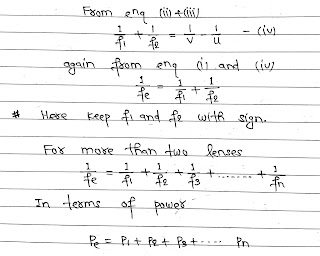 From enq (ii) + (iii)
1/f1 + 1/f2 = 1/v - 1/u - (iv)
again from enq (i) and (iv)
1/fe = 1/f1 + 1/f2
* Here keep f1 and f2 with sign.
For more than two lenses
1/fe = 1/f1 + 1/f2 + 1/f3 + ........ + 1/fn
In terms of power
Pe = P1 + P2 + P3 + ..... Pn